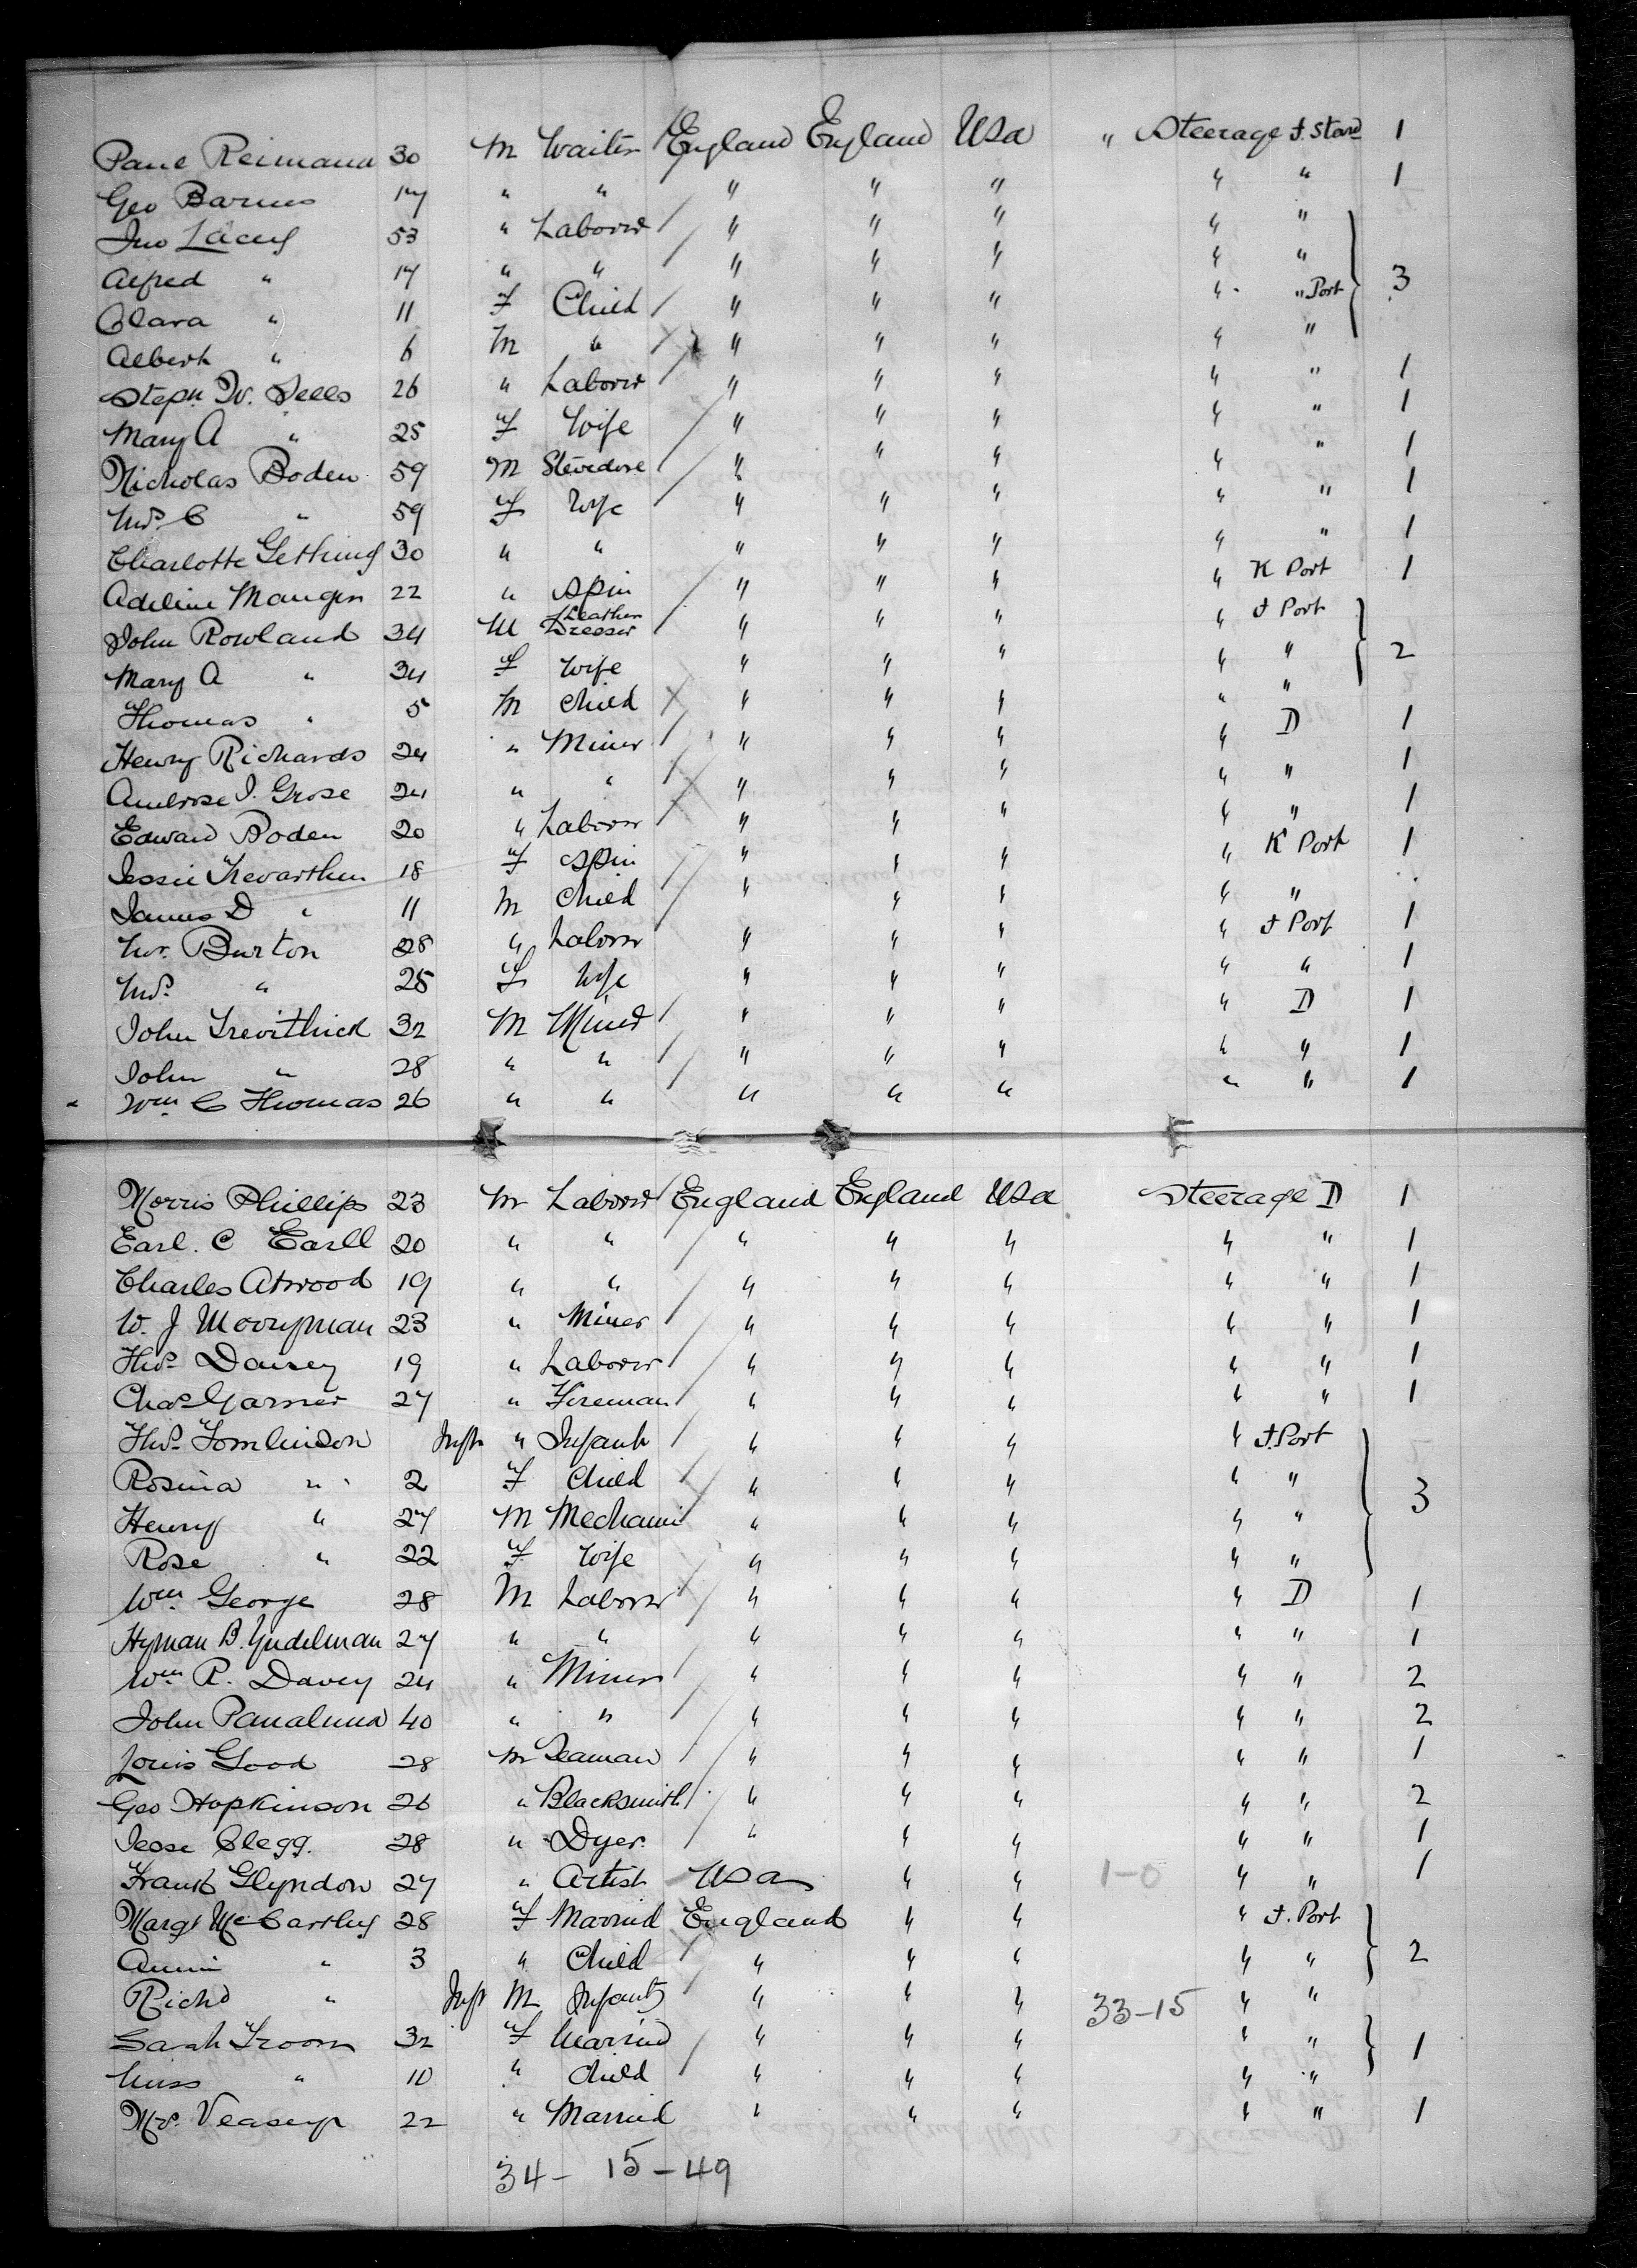 Paul Reimann 30 M Waiter England England Usa " Steerage F. Starb 1
Geo Barnes 17 " " " " " " " 1
Jno Lacey 53 " Laborer " " " " "
Alfred " 17 " " " " " " "
Clara " 11 F Child " " " " " Port 3
Albert " 6 M " " " " " "
Steph. W. Sells 26 " Laborer " " " " " 1
Mary A " 25 F Wife " " " " " 1
Nicholas Boden 59 M Stevedore " " " " " 1
Mrs. C " 59 F Wife " " " " " 1
Charlotte Gething 30 " " " " " " " 1
Adeline Maugen 22 " Spin " " " " K Port 1
John Rowland 34 M Leather Dresser " " " " F Port
Mary A " 34 F Wife " " " " " 2
Thomas " 5 M Child " " " " "
Henry Richards 24 " Miner " " " " D 1
Ambrose J. Grose 24 " " " " " " " 1
Edward Boden 20 " Laborer " " " " " 1
Jessie Trevarthen 18 F Spin " " " " K Port 1
James D " 11 M Child " " " " "
Mr. Burton 28 " Laborer " " " " F Port 1
Mrs. " 25 F Wife " " " " " 1
John Trevithick 32 M Miner " " " " D 1
John " 28 " " " " " " " 1
Wm C Thomas 26 " " " " " " " 1
Morris Phillips 23 M Laborer England England Usa Steerage D 1
Earl. C Earll 20 " " " " " " " 1
Charles Atwood 19 " " " " " " " 1
W. J Merryman 23 " Miner " " " " " 1
Thos. Dansey 19 " Laborer " " " " " 1
Chas Garner 27 " Fireman " " " " " 1
Thos. Tomlinson Inft " Infant " " " " F. Port
Rosina " 2 F Child " " " " "
Henry " 27 M Mechanic " " " " " 3
Rose " 22 F Wife " " " " "
Wm. George 28 M Laborer " " " " D 1
Hyman B. Yudelman 27 " " " " " " " 1
Wm R. Davey 24 " Miner " " " " " 2
John Panaluna 40 " " " " " " " 2
Louis Good 28 M Seaman " " " " " 1
Geo Hopkinson 26 " Blacksmith " " " " " 2
Jesse Clegg. 28 " Dyer. " " " " " 1
Frank Glyndon 27 " Artist Usa " " 1-0 " " 1
Margt McCarthy 28 F Married England " " " F. Port
Annie " 3 " Child " " " " " 2
Richd " Inft M Infant " " " 33-15 " "
Sarah Froom 32 F Married " " " " " 1
Miss " 10 " Child " " " " "
Mrs. Veasey 22 " Married " " " " " 1
34- 15-49